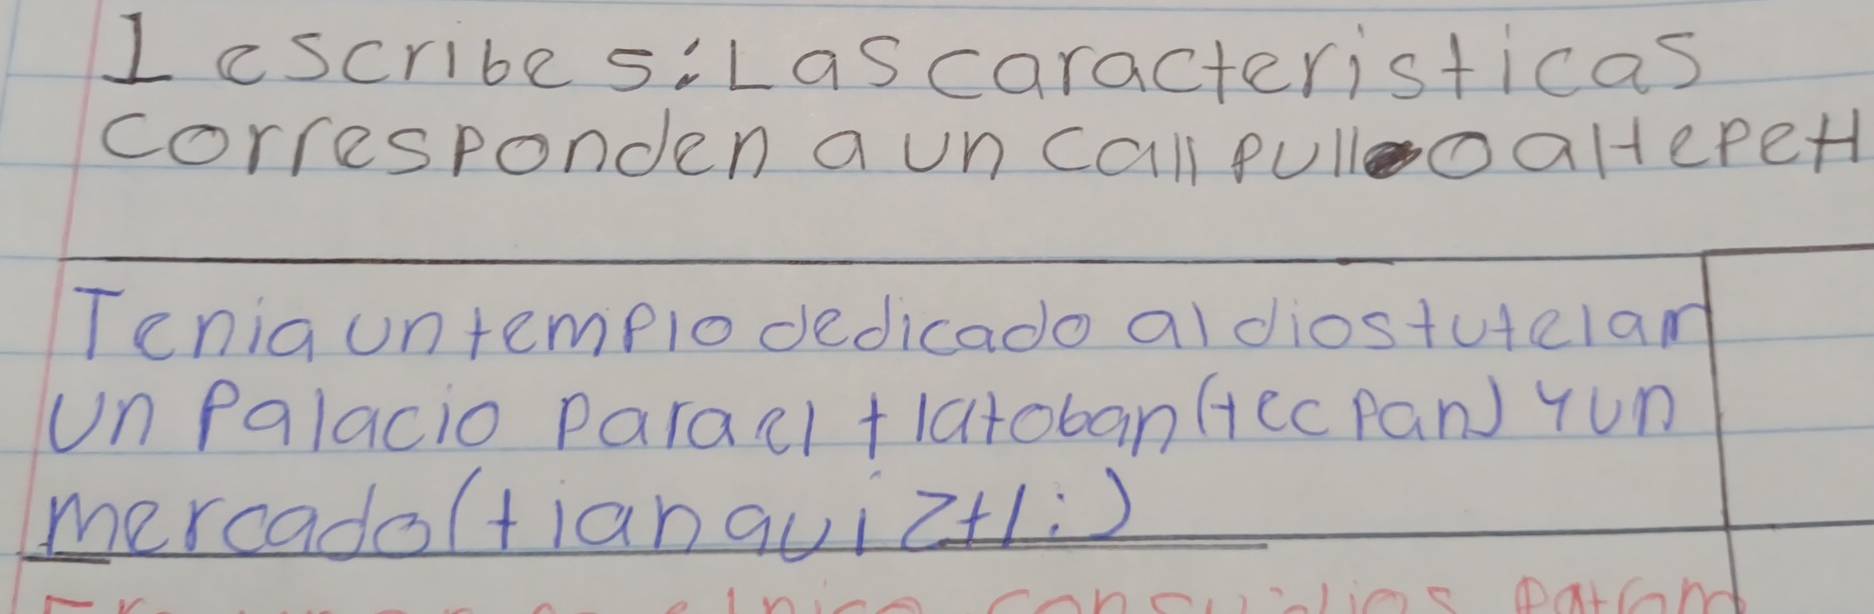 1 escribe s: Las caracteristicas
corresponden a un callpull o altepetl
Tenia un templo dedicado al dios tutelar
un palacio para el tlatoban (teccpan) y un
mercado (tianquiztli)